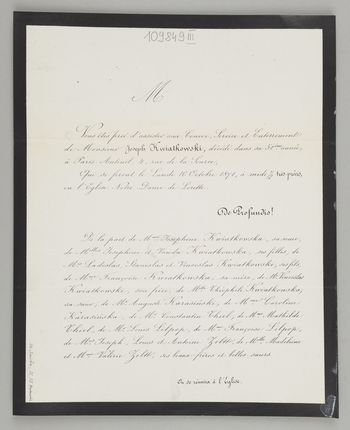 109849 III
M
Vous êtes prié d'assister aux Convoi, Service et Enterrement
de Monsieur Joseph Kwiatkowski, décédé dans sa 51ème année,
à Paris Auteuil 4, rue de la Source,
Qui se feront le Lundi 16 Octobre 1871, à midi très précis,
en l'Eglise Notre Dame de Lorette.
De Profundis!
De la part de Mme Joséphine Kwiatkowska, sa veuve,
de Melles Joséphine et Vanda Kwiatkowska, ses filles, de
MM. Ladislas, Stanislas et Venceslas Kwiatkowski, ses fils,
de Mme Françoise Kwiatkowska, sa mère, de M. Venceslas
Kwiatkowski, son frère, de Melle Théophile Kwiatkowska,
sa sœur, de M. Auguste Karasinski, de Mme Caroline
Karasinska, de M. Constantin Thiel, de Mme Mathilde
Thiel, de M. Louis Lilpop, de Mme Françoise Lilpop,
de MM. Joseph, Louis et Antoine Zeltt, de Melle Madeleine
et Mme Valérie Zeltt, ses beaux-frères et belles sœurs.
On se réunira à l'Eglise.